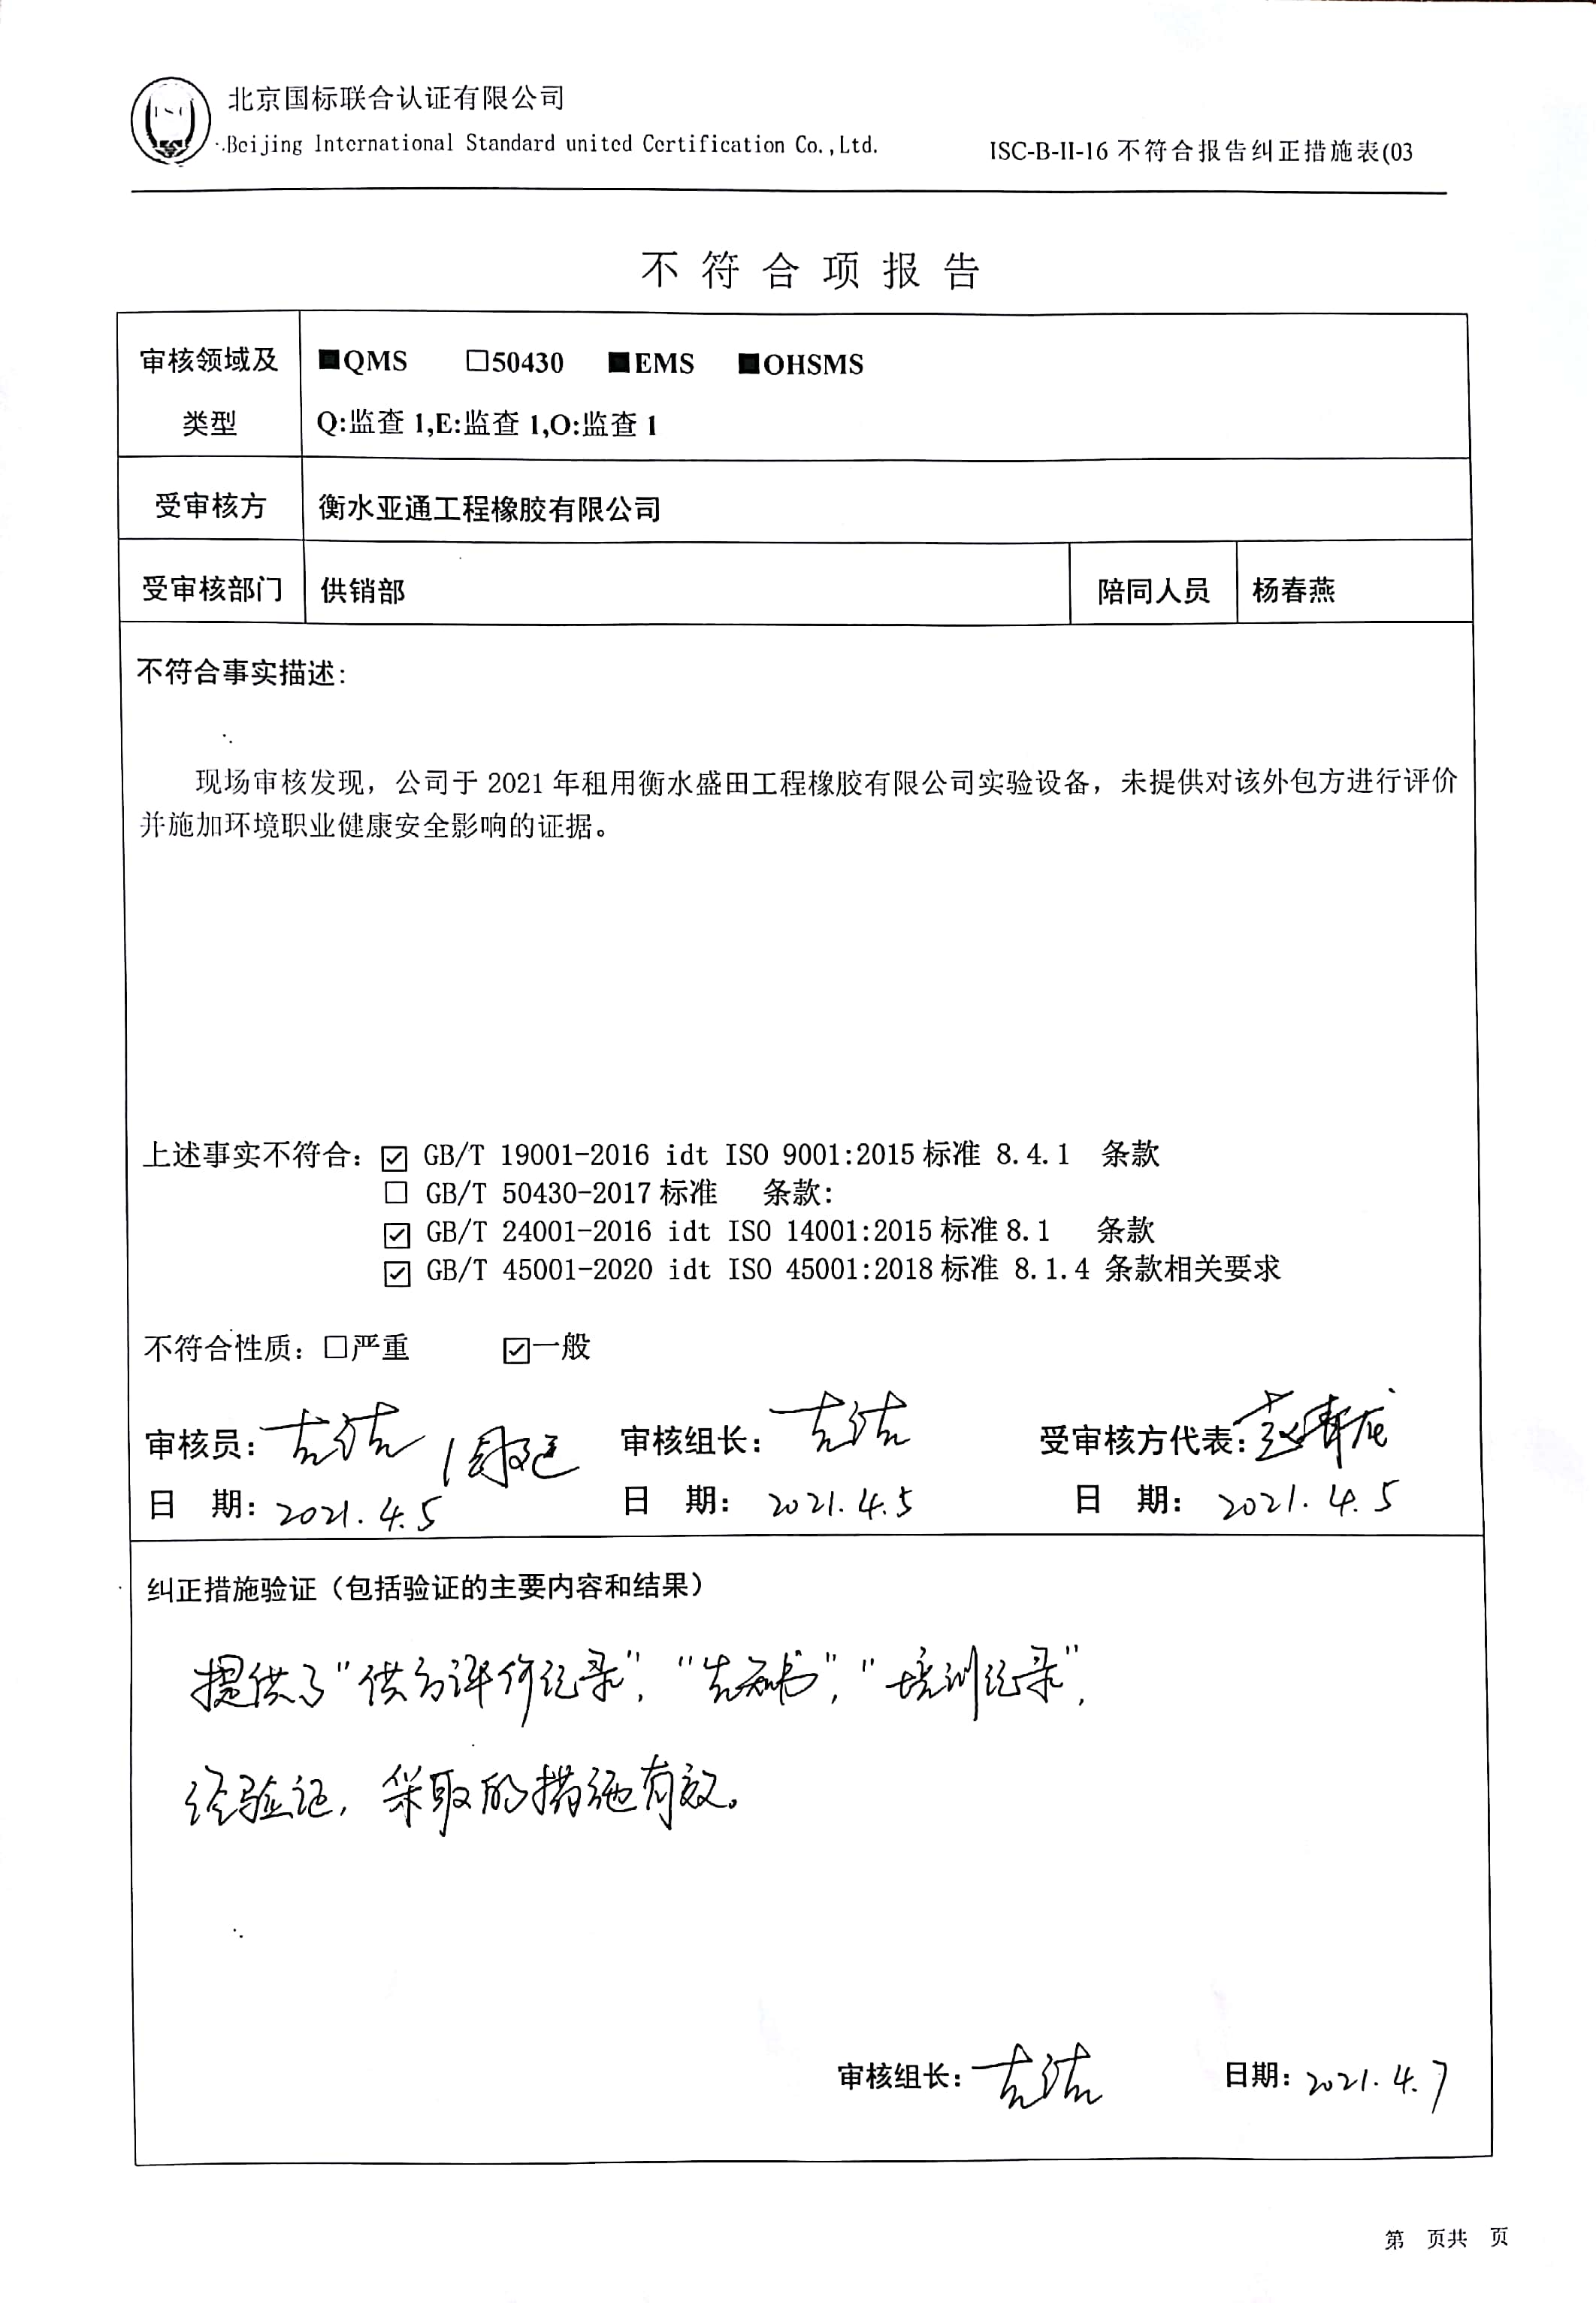 北京国标联合认证有限公司
Beijing International Standard united Certification Co.,Ltd.
ISC-B-II-16 不符合报告纠正措施表(03
不符合项报告
审核领域及类型
■QMS □50430 ■EMS ■OHSMS
Q:监查 1,E:监查 1,O:监查 1
受审核方 衡水亚通工程橡胶有限公司
受审核部门 供销部 陪同人员 杨春燕
不符合事实描述:
现场审核发现，公司于 2021 年租用衡水盛田工程橡胶有限公司实验设备，未提供对该外包方进行评价
并施加环境职业健康安全影响的证据。
上述事实不符合: ☑ GB/T 19001-2016 idt ISO 9001:2015 标准 8.4.1 条款
□ GB/T 50430-2017 标准 条款:
☑ GB/T 24001-2016 idt ISO 14001:2015 标准 8.1 条款
☑ GB/T 45001-2020 idt ISO 45001:2018 标准 8.1.4 条款相关要求
不符合性质: □严重 ☑一般
审核员: 审核组长: 受审核方代表:
日 期: 2021.4.5 日 期: 2021.4.5 日 期: 2021.4.5
纠正措施验证（包括验证的主要内容和结果）
提供了"供方评价记录"，"告知书"，"培训记录"，
经验证，采取的措施有效。
审核组长: 日期: 2021.4.7
第 页共 页